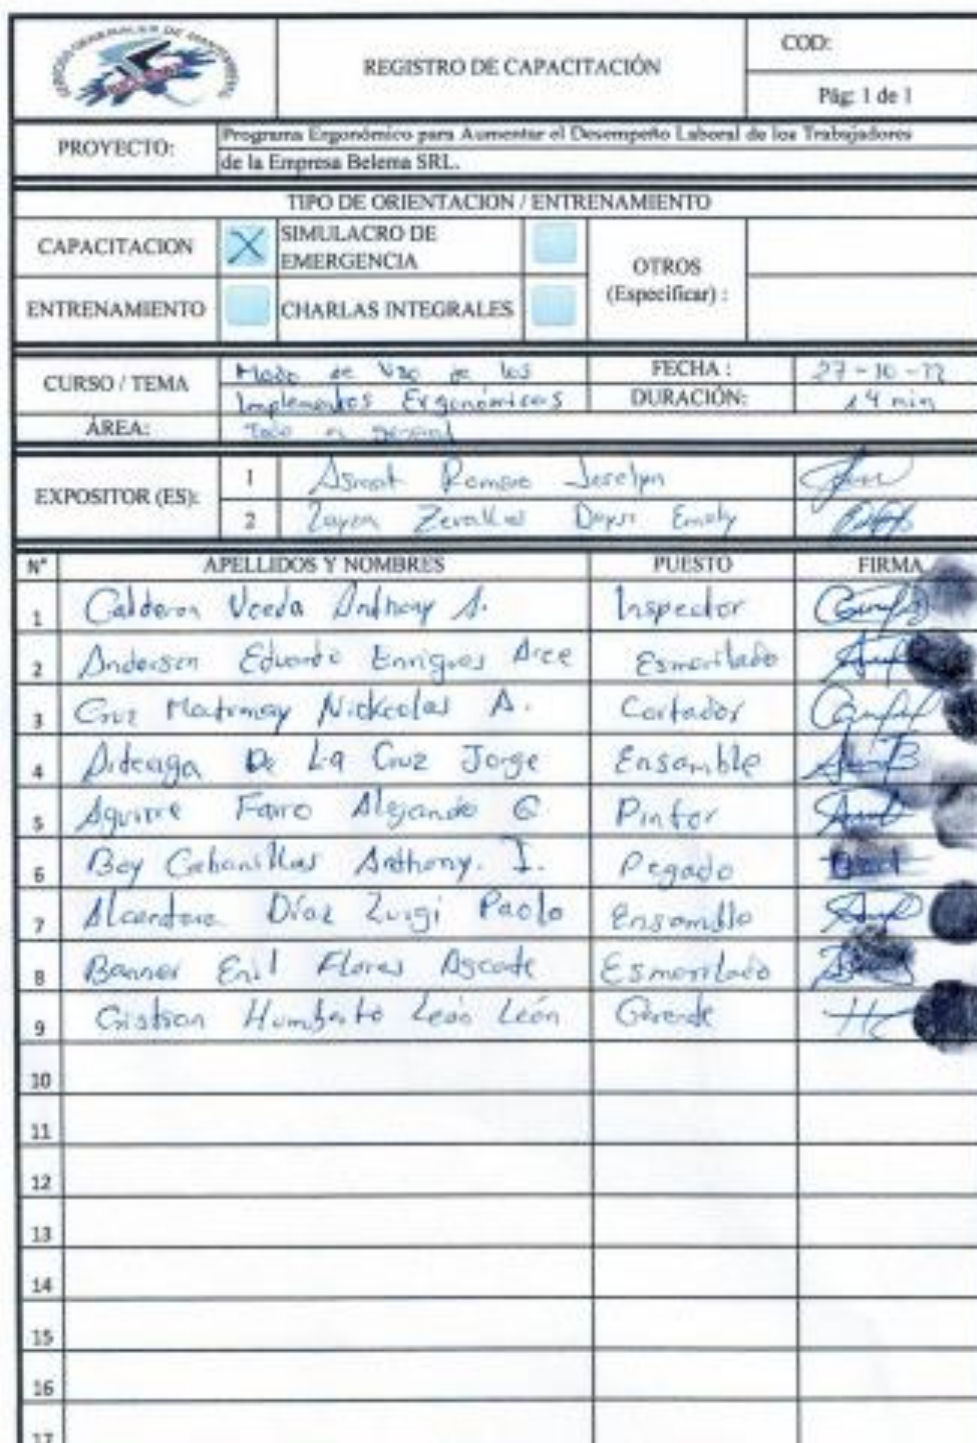 REGISTRO DE CAPACITACIÓN
COD:
Pág: 1 de 1
PROYECTO:
Programa Ergonómico para Aumentar el Desempeño Laboral de los Trabajadores
de la Empresa Belema SRL.
TIPO DE ORIENTACION / ENTRENAMIENTO
CAPACITACION X SIMULACRO DE EMERGENCIA
OTROS (Especificar) :
ENTRENAMIENTO CHARLAS INTEGRALES
CURSO / TEMA
Modo de Uso de los
Implementos Ergonómicos
FECHA : 27-10-22
DURACIÓN: 14 min
ÁREA: Todo en general
EXPOSITOR (ES):
1 Asmat Romero Joselyn
2 Emely
N° APELLIDOS Y NOMBRES PUESTO FIRMA
1 Calderon Uceda Anthony A. Inspector
2 Anderson Eduardo Enriques Arce Esmerilado
3 Cruz Nickcolas A. Cortador
4 Arteaga De La Cruz Jorge Ensamble
5 Aguirre Farro Alejando G Pintor
6 Boy Cabanillas Anthony. I. Pegado
7 Alcantara Díaz Luigi Paolo Ensamble
8 Enil Flores Esmerilado
9 Humberto León León Gerende
10
11
12
13
14
15
16
17